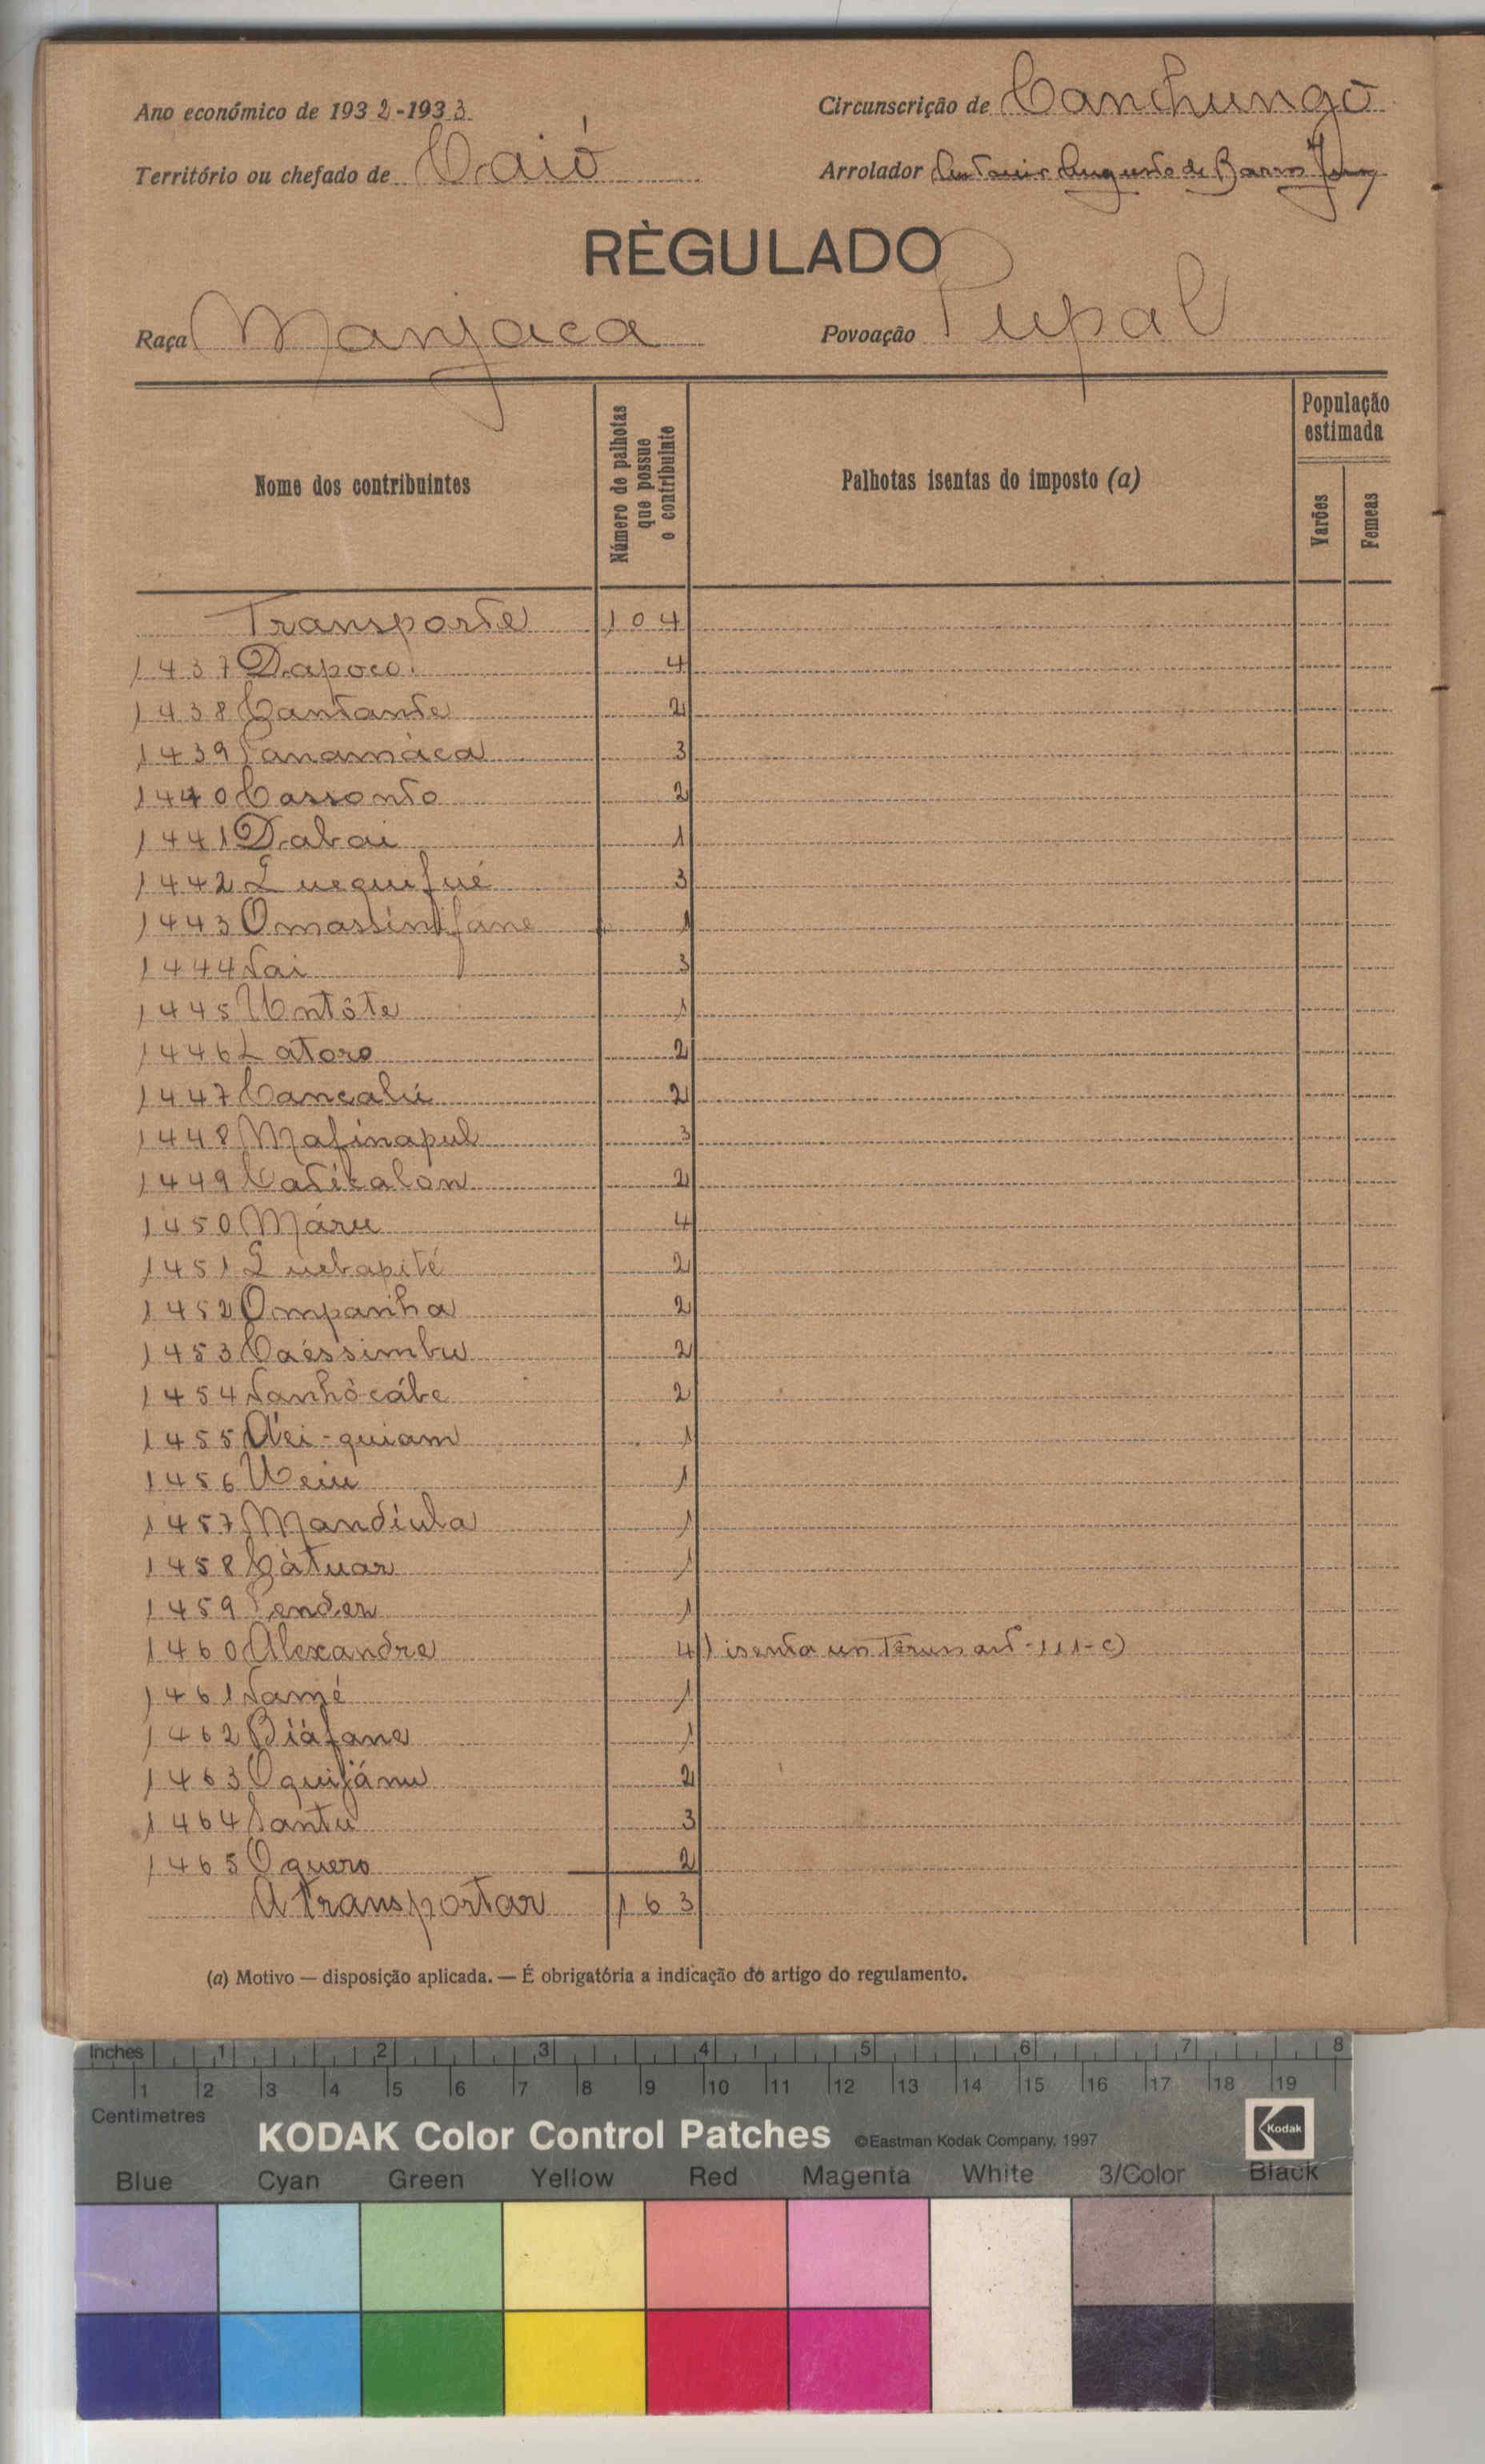 Ano económico de 1932-1933
Circunscrição de Canchungo
Território ou chefado de Caió
Arrolador Antonio Augusto de Barros
RÈGULADO
Raça Manjaca
Povoação Pupal
Nome dos contribuintes
Número de palhotas que possue o contribuinte
Palhotas isentas do imposto (a)
População estimada
Varões
Femeas
Transporte 104
1437 Dapoco 4
1438 Cantante 2
1439 Panamáca 3
1440 Cassonto 2
1441 Dabai 1
1442 Quequifué 3
1443 Omassintfane 1
1444 Nai 3
1445 Untôte 1
1446 Latoro 2
1447 Cancalú 2
1448 Mafinapul 3
1449 Caticalon 2
1450 Máru 4
1451 Quebapité 2
1452 Ompanha 2
1453 Caéssimbu 2
1454 Nanhôcábe 2
1455 Dei-quiam 1
1456 Ueiu 1
1457 Mandiula 1
1458 Cátuar 1
1459 Pender 1
1460 Alexandre 4 1 isenta art-111-c)
1461 Namé 1
1462 Biáfane 1
1463 Oquijánu 2
1464 Santu 3
1465 Oquero 2
A transportar 163
(a) Motivo — disposição aplicada. — É obrigatória a indicação do artigo do regulamento.
Inches 1 2 3 4 5 6 7 8
1 2 3 4 5 6 7 8 9 10 11 12 13 14 15 16 17 18 19
Centimetres
KODAK Color Control Patches ©Eastman Kodak Company, 1997 Kodak
Blue Cyan Green Yellow Red Magenta White 3/Color Black